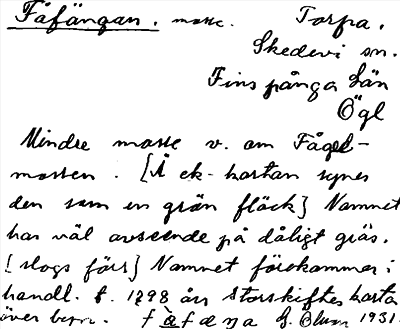 Fåfängan. mosse. Torpa,
Skedevi sn.
Finspånga Län
Ögl
Mindre mosse v. om Fågel-
mossen. [Å ek-kartan synes
den som en grön fläck] Namnet
har väl avseende på dåligt gräs.
[slogs förr] Namnet förekommer i
handl. t. 1298 års Storskifteskarta
över